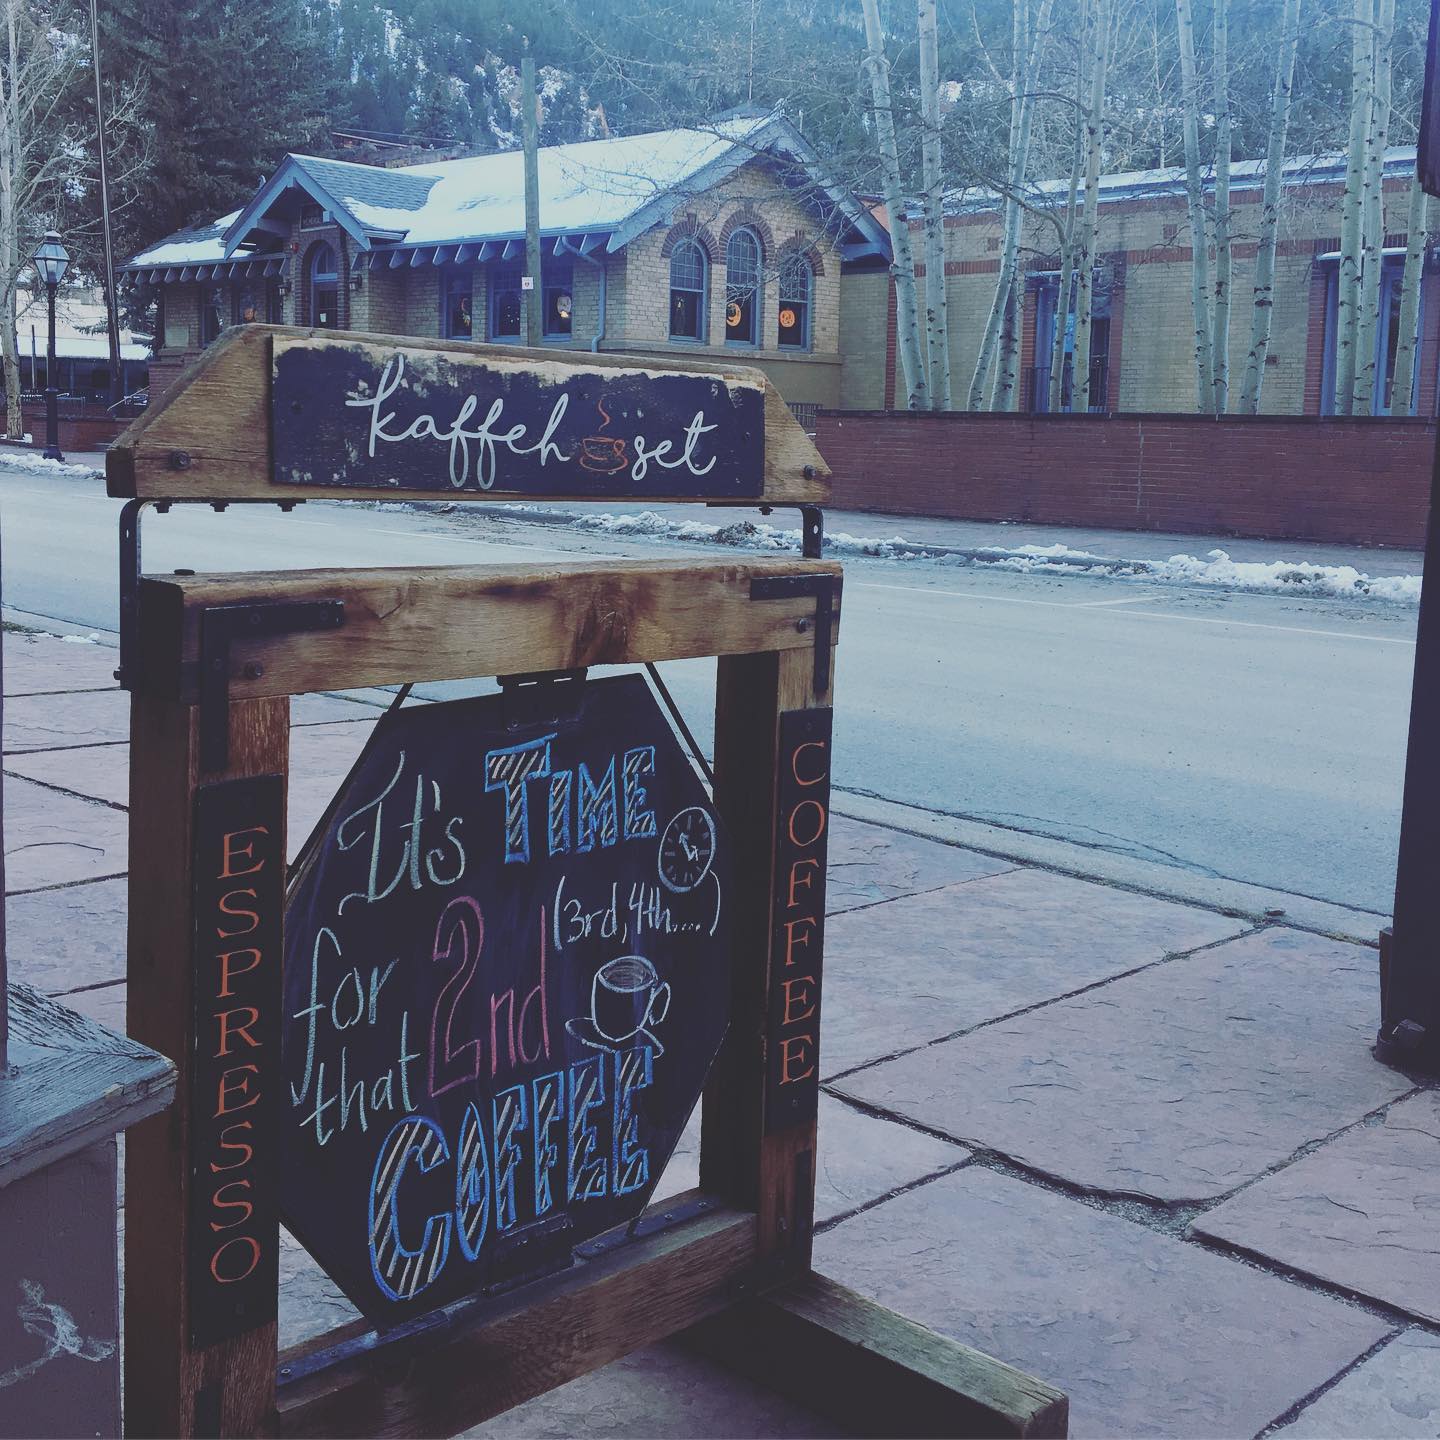 kaffeh set
It's TIME
(3rd, 4th....)
for
that 2nd
COFFEE
ESPRESSO
COFFEE